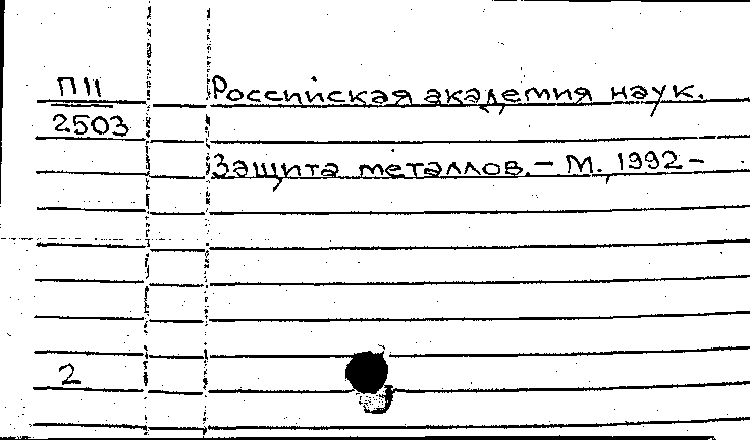 П11 Российская академия наук.
2503
Защита металлов. – М., 1992 –
2